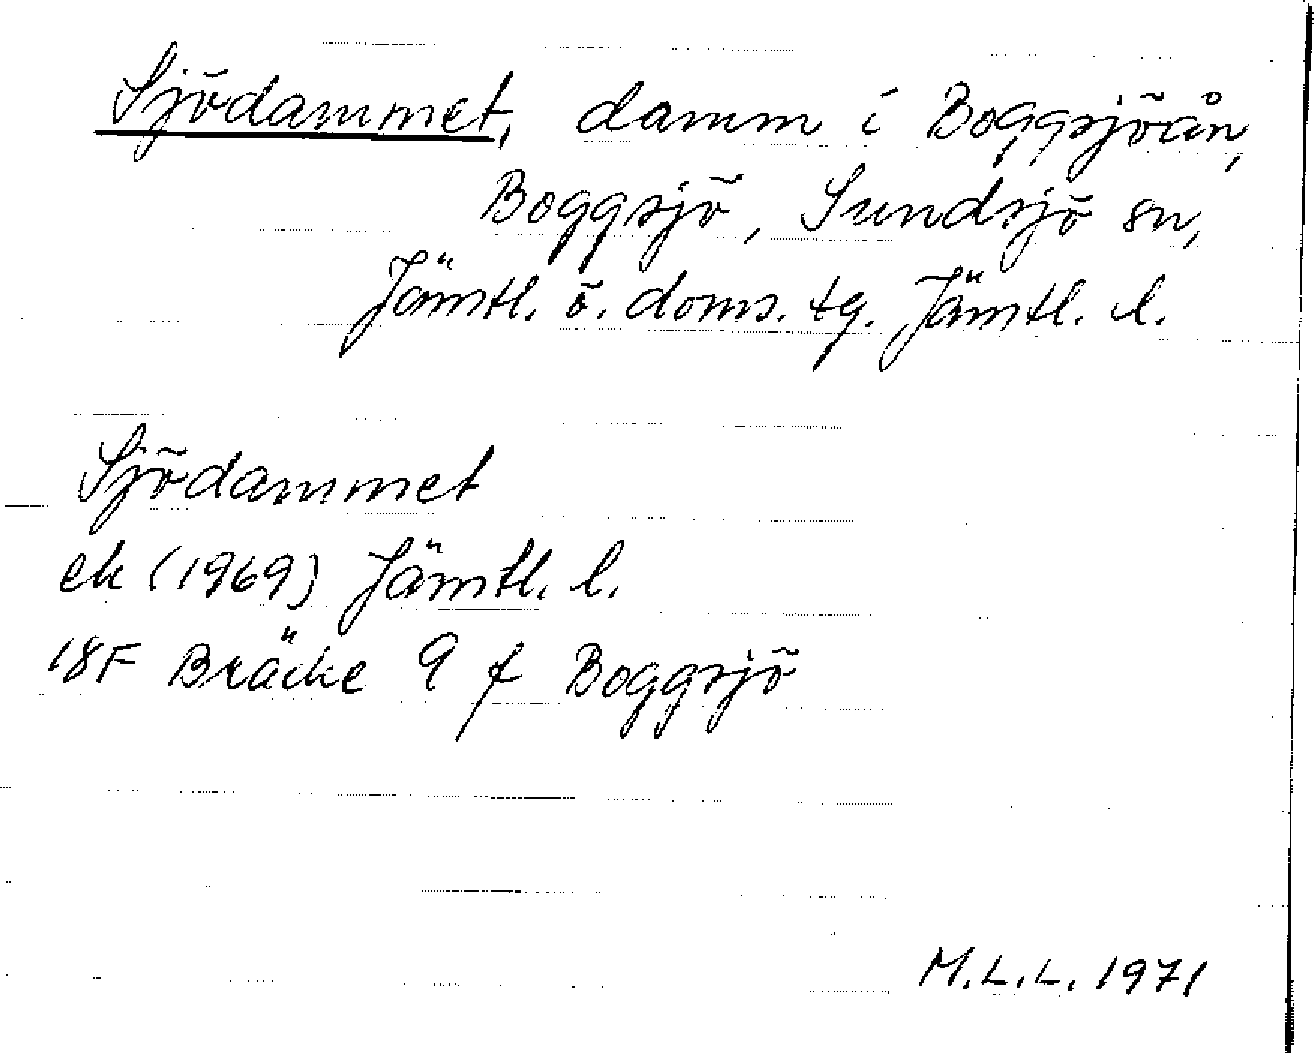 Sjödammet, damm i Boggsjöån,
Boggsjö, Sundsjö sn,
Jämtl. ö. doms. tg. Jämtl. l.
Sjödammet
ek (1969) Jämtl. l.
18F Bräcke 9 f Boggsjö
M.L.L. 1971